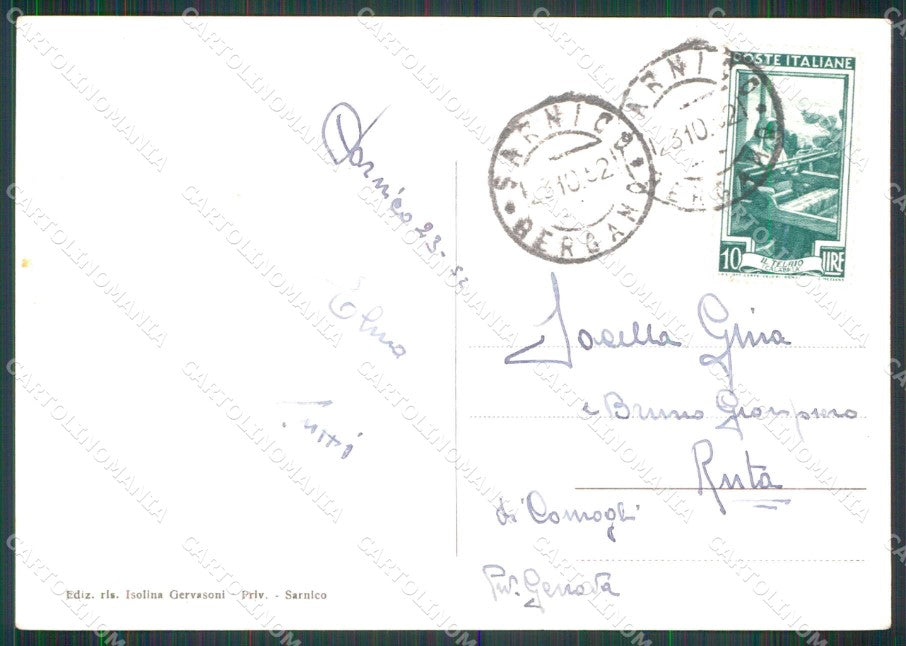 POSTE ITALIANE
10 LIRE
IL TELAIO
CALABRIA
SARNICO
23.10.52
BERGAMO
SARNICO
23.10.52
BERGAMO
Sarnico 23-52
Elma
Tutti
Gina
e Bruno
Ruta
di Camogli
Prv. Genova
Ediz. ris. Isolina Gervasoni - Priv. - Sarnico
CARTOLINOMANIA